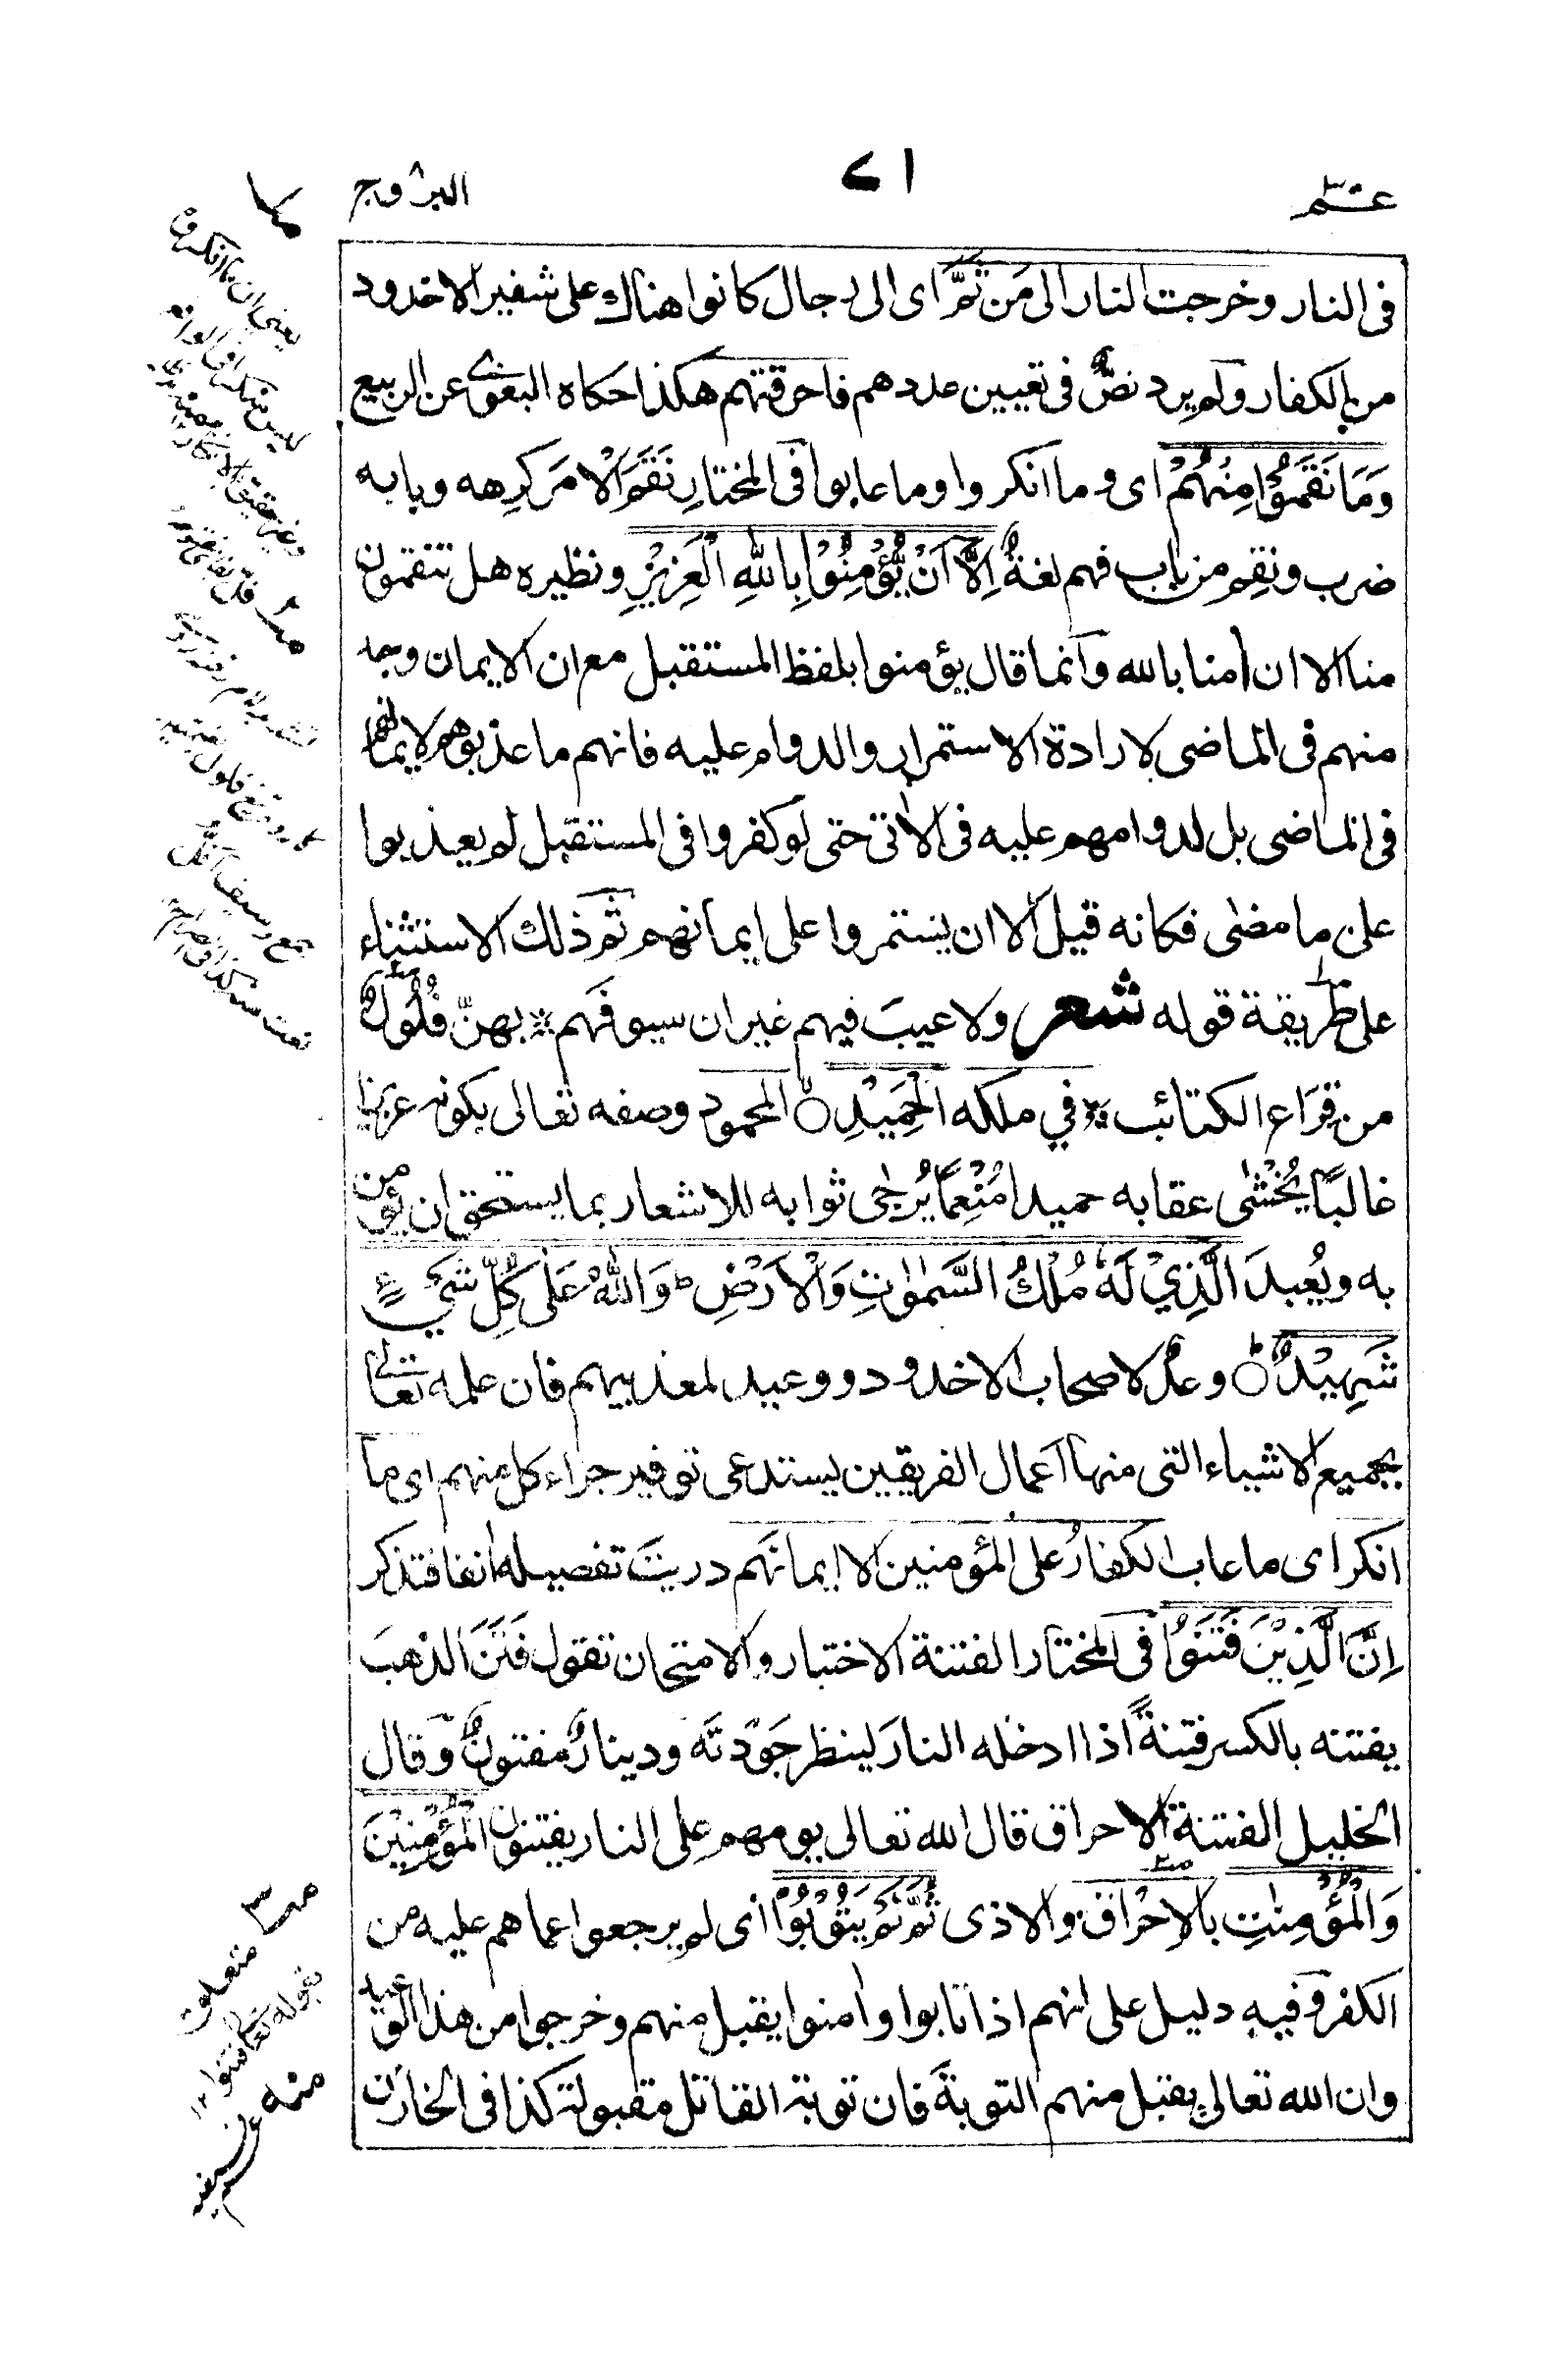 عـم
٧١
البروج
فى النار وخرجت النار الى مَن ثَمَّ اى الى رجال كانوا هناك على شفير الاخدود
من الكفار ولم يرد نصٌّ فى تعيين عددهم فاحرقتهم هكذا حكاه البغوى عن الربيع
وَمَا نَقَمُوْا مِنْهُمْ اى وما انكروا وما عابوا فى المختارِ نَقَمَ الْامرَ كرِهه وبابه
ضرب ونقِم من باب فهم لغةٌ اِلَّا اَنْ يُّؤْمِنُوْا بِاللهِ الْعَزِيْزِ ونظيره هل تنقمون
منا الا ان اٰمنا بالله وانما قال يؤمنوا بلفظ المستقبل مع ان الايمان وجد
منهم فى الماضى لارادة الاستمرار والدوام عليه فانهم ما عذبوهم لايمانهم
فى الماضى بل لدوامهم عليه فى الاٰتى حتى لو كفروا فى المستقبل لم يعذبوا
على ما مضٰى فكانه قيل الا ان يستمروا على ايمانهم ثم ذلك الاستثناء
على طريقة قوله شعر ولا عيبَ فيهم غير ان سيوفَهم ؞ بهنّ فُلُولٌ
من قِرَاع الكتائب ؞ في ملكه الْحَمِيْدِ ۝ المحمود وصفه تعالى بكونه عزيزا
غالبًا يُخْشٰى عقابه حميدا مُنْعِمًا يُرجٰى ثوابه للاشعار بما يستحق ان يؤمن
به ويُعبدَ الَّذِيْ لَهٗ مُلْكُ السَّمٰوٰتِ وَالْاَرْضِ ؕ وَاللهُ عَلٰى كُلِّ شَيْءٍ
شَهِيْدٌ ۝ وعدٌ لاصحاب الاخدود ووعيد لمعذبيهم فان علمه تعالى
بجميع الاشياء التى منها اعمال الفريقين يستدعى توفير جزاء كل منهم اى ما
انكر اى ما عاب الكفارُ على المؤمنين الا ايمانَهم دريتَ تفصيله اٰنفا فتذكر
اِنَّ الَّذِيْنَ فَتَنُوْا فى المختار الفتنة الاختبار والامتحان تقول فَتَنَ الذهبَ
يفتنه بالكسر فتنةً اذا ادخله النارَ لينظر جَوْدتَه ودينارٌ مفتونٌ وقال
الخليل الفتنة الاحراق قال الله تعالى يومهم على النار يفتنون الْمُؤْمِنِيْنَ
وَالْمُؤْمِنٰتِ بالاحْراق والاذى ثُمَّ لَمْ يَتُوْبُوْا اى لم يرجعوا عما هم عليه من
الكفر وفيه دليل على انهم اذا تابوا واٰمنوا يقبل منهم وخرجوا من هذا الوعيد
وان الله تعالى يقبل منهم التوبةَ فان توبة القاتل مقبولة كذا فى الخازن
متعلق
بقوله تعالى فتنوا ١٢
منه